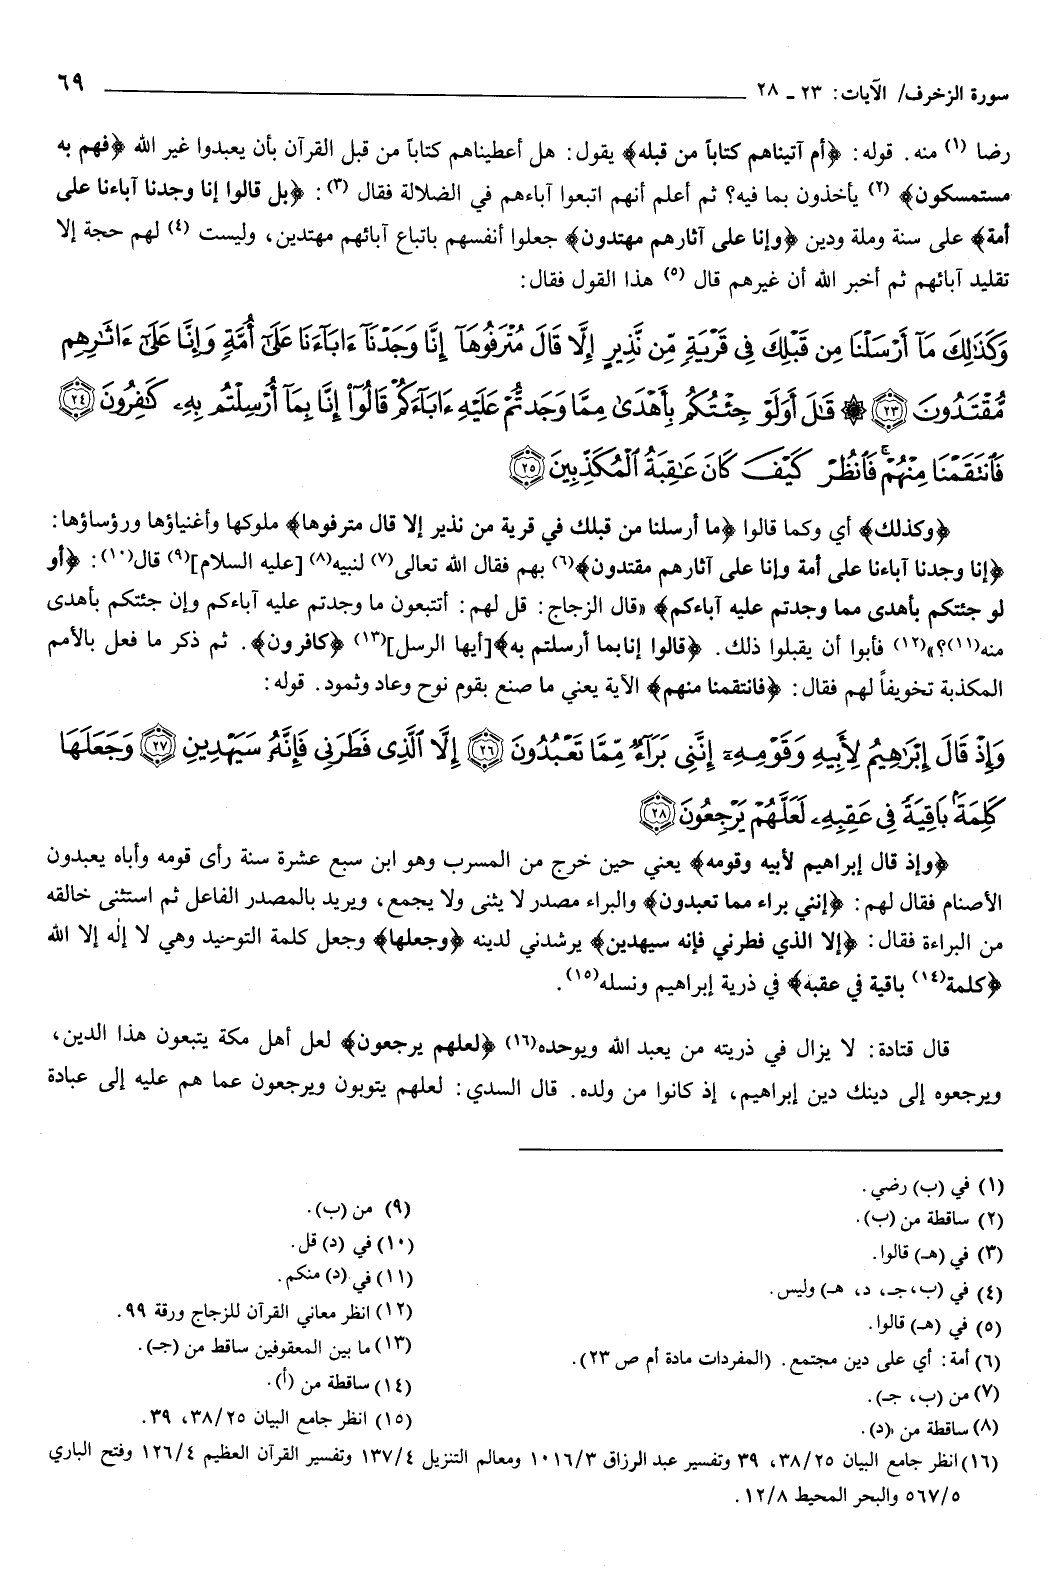 سورة الزخرف/ الآيات: ٢٣ ـ ٢٨
٦٩
رضا (١) منه. قوله: ﴿أم آتيناهم كتاباً من قبله﴾ يقول: هل أعطيناهم كتاباً من قبل القرآن بأن يعبدوا غير الله ﴿فهم به
مستمسكون﴾ (٢) يأخذون بما فيه؟ ثم أعلم أنهم اتبعوا آباءهم في الضلالة فقال (٣): ﴿بل قالوا إنا وجدنا آباءنا على
أمة﴾ على سنة وملة ودين ﴿وإنا على آثارهم مهتدون﴾ جعلوا أنفسهم باتباع آبائهم مهتدين، وليست (٤) لهم حجة إلا
تقليد آبائهم ثم أخبر الله أن غيرهم قال (٥) هذا القول فقال:
وَكَذَٰلِكَ مَآ أَرْسَلْنَا مِن قَبْلِكَ فِى قَرْيَةٍ مِّن نَّذِيرٍ إِلَّا قَالَ مُتْرَفُوهَآ إِنَّا وَجَدْنَآ ءَابَآءَنَا عَلَىٰٓ أُمَّةٍ وَإِنَّا عَلَىٰٓ ءَاثَٰرِهِم
مُّقْتَدُونَ ٢٣ ۞ قَٰلَ أَوَلَوْ جِئْتُكُم بِأَهْدَىٰ مِمَّا وَجَدتُّمْ عَلَيْهِ ءَابَآءَكُمْ قَالُوٓا۟ إِنَّا بِمَآ أُرْسِلْتُم بِهِۦ كَٰفِرُونَ ٢٤
فَٱنتَقَمْنَا مِنْهُمْ ۖ فَٱنظُرْ كَيْفَ كَانَ عَٰقِبَةُ ٱلْمُكَذِّبِينَ ٢٥
﴿وكذلك﴾ أي وكما قالوا ﴿ما أرسلنا من قبلك في قرية من نذير إلا قال مترفوها﴾ ملوكها وأغنياؤها ورؤساؤها:
﴿إنا وجدنا آباءنا على أمة وإنا على آثارهم مقتدون﴾(٦) بهم فقال الله تعالى(٧) لنبيه(٨) [عليه السلام](٩) قال(١٠): ﴿أو
لو جئتكم بأهدى مما وجدتم عليه آباءكم﴾ «قال الزجاج: قل لهم: أتتبعون ما وجدتم عليه آباءكم وإن جئتكم بأهدى
منه(١١)؟»(١٢) فأبوا أن يقبلوا ذلك. ﴿قالوا إنا بما أرسلتم به﴾[أيها الرسل](١٣) ﴿كافرون﴾. ثم ذكر ما فعل بالأمم
المكذبة تخويفاً لهم فقال: ﴿فانتقمنا منهم﴾ الآية يعني ما صنع بقوم نوح وعاد وثمود. قوله:
وَإِذْ قَالَ إِبْرَٰهِيمُ لِأَبِيهِ وَقَوْمِهِۦٓ إِنَّنِى بَرَآءٌ مِّمَّا تَعْبُدُونَ ٢٦ إِلَّا ٱلَّذِى فَطَرَنِى فَإِنَّهُۥ سَيَهْدِينِ ٢٧ وَجَعَلَهَا
كَلِمَةًۢ بَاقِيَةً فِى عَقِبِهِۦ لَعَلَّهُمْ يَرْجِعُونَ ٢٨
﴿وإذ قال إبراهيم لأبيه وقومه﴾ يعني حين خرج من المسرب وهو ابن سبع عشرة سنة رأى قومه وأباه يعبدون
الأصنام فقال لهم: ﴿إنني براء مما تعبدون﴾ والبراء مصدر لا يثنى ولا يجمع، ويريد بالمصدر الفاعل ثم استثنى خالقه
من البراءة فقال: ﴿إلا الذي فطرني فإنه سيهدين﴾ يرشدني لدينه ﴿وجعلها﴾ وجعل كلمة التوحيد وهي لا إله إلا الله
﴿كلمة(١٤) باقية في عقبه﴾ في ذرية إبراهيم ونسله(١٥).
قال قتادة: لا يزال في ذريته من يعبد الله ويوحده(١٦) ﴿لعلهم يرجعون﴾ لعل أهل مكة يتبعون هذا الدين،
ويرجعوه إلى دينك دين إبراهيم، إذ كانوا من ولده. قال السدي: لعلهم يتوبون ويرجعون عما هم عليه إلى عبادة
(١) في (ب) رضي.
(٢) ساقطة من (ب).
(٣) في (هـ) قالوا.
(٤) في (ب، جـ، د، هـ) وليس.
(٥) في (هـ) قالوا.
(٦) أمة: أي على دين مجتمع. (المفردات مادة أم ص ٢٣).
(٧) من (ب، جـ).
(٨) ساقطة من (د).
(٩) من (ب).
(١٠) في (د) قل.
(١١) في (د) منكم.
(١٢) انظر معاني القرآن للزجاج ورقة ٩٩.
(١٣) ما بين المعقوفين ساقط من (جـ).
(١٤) ساقطة من (أ).
(١٥) انظر جامع البيان ٣٨/٢٥، ٣٩.
(١٦) انظر جامع البيان ٣٨/٢٥، ٣٩ وتفسير عبد الرزاق ١٠١٦/٣ ومعالم التنزيل ١٣٧/٤ وتفسير القرآن العظيم ١٢٦/٤ وفتح الباري
٥٦٧/٥ والبحر المحيط ١٢/٨.